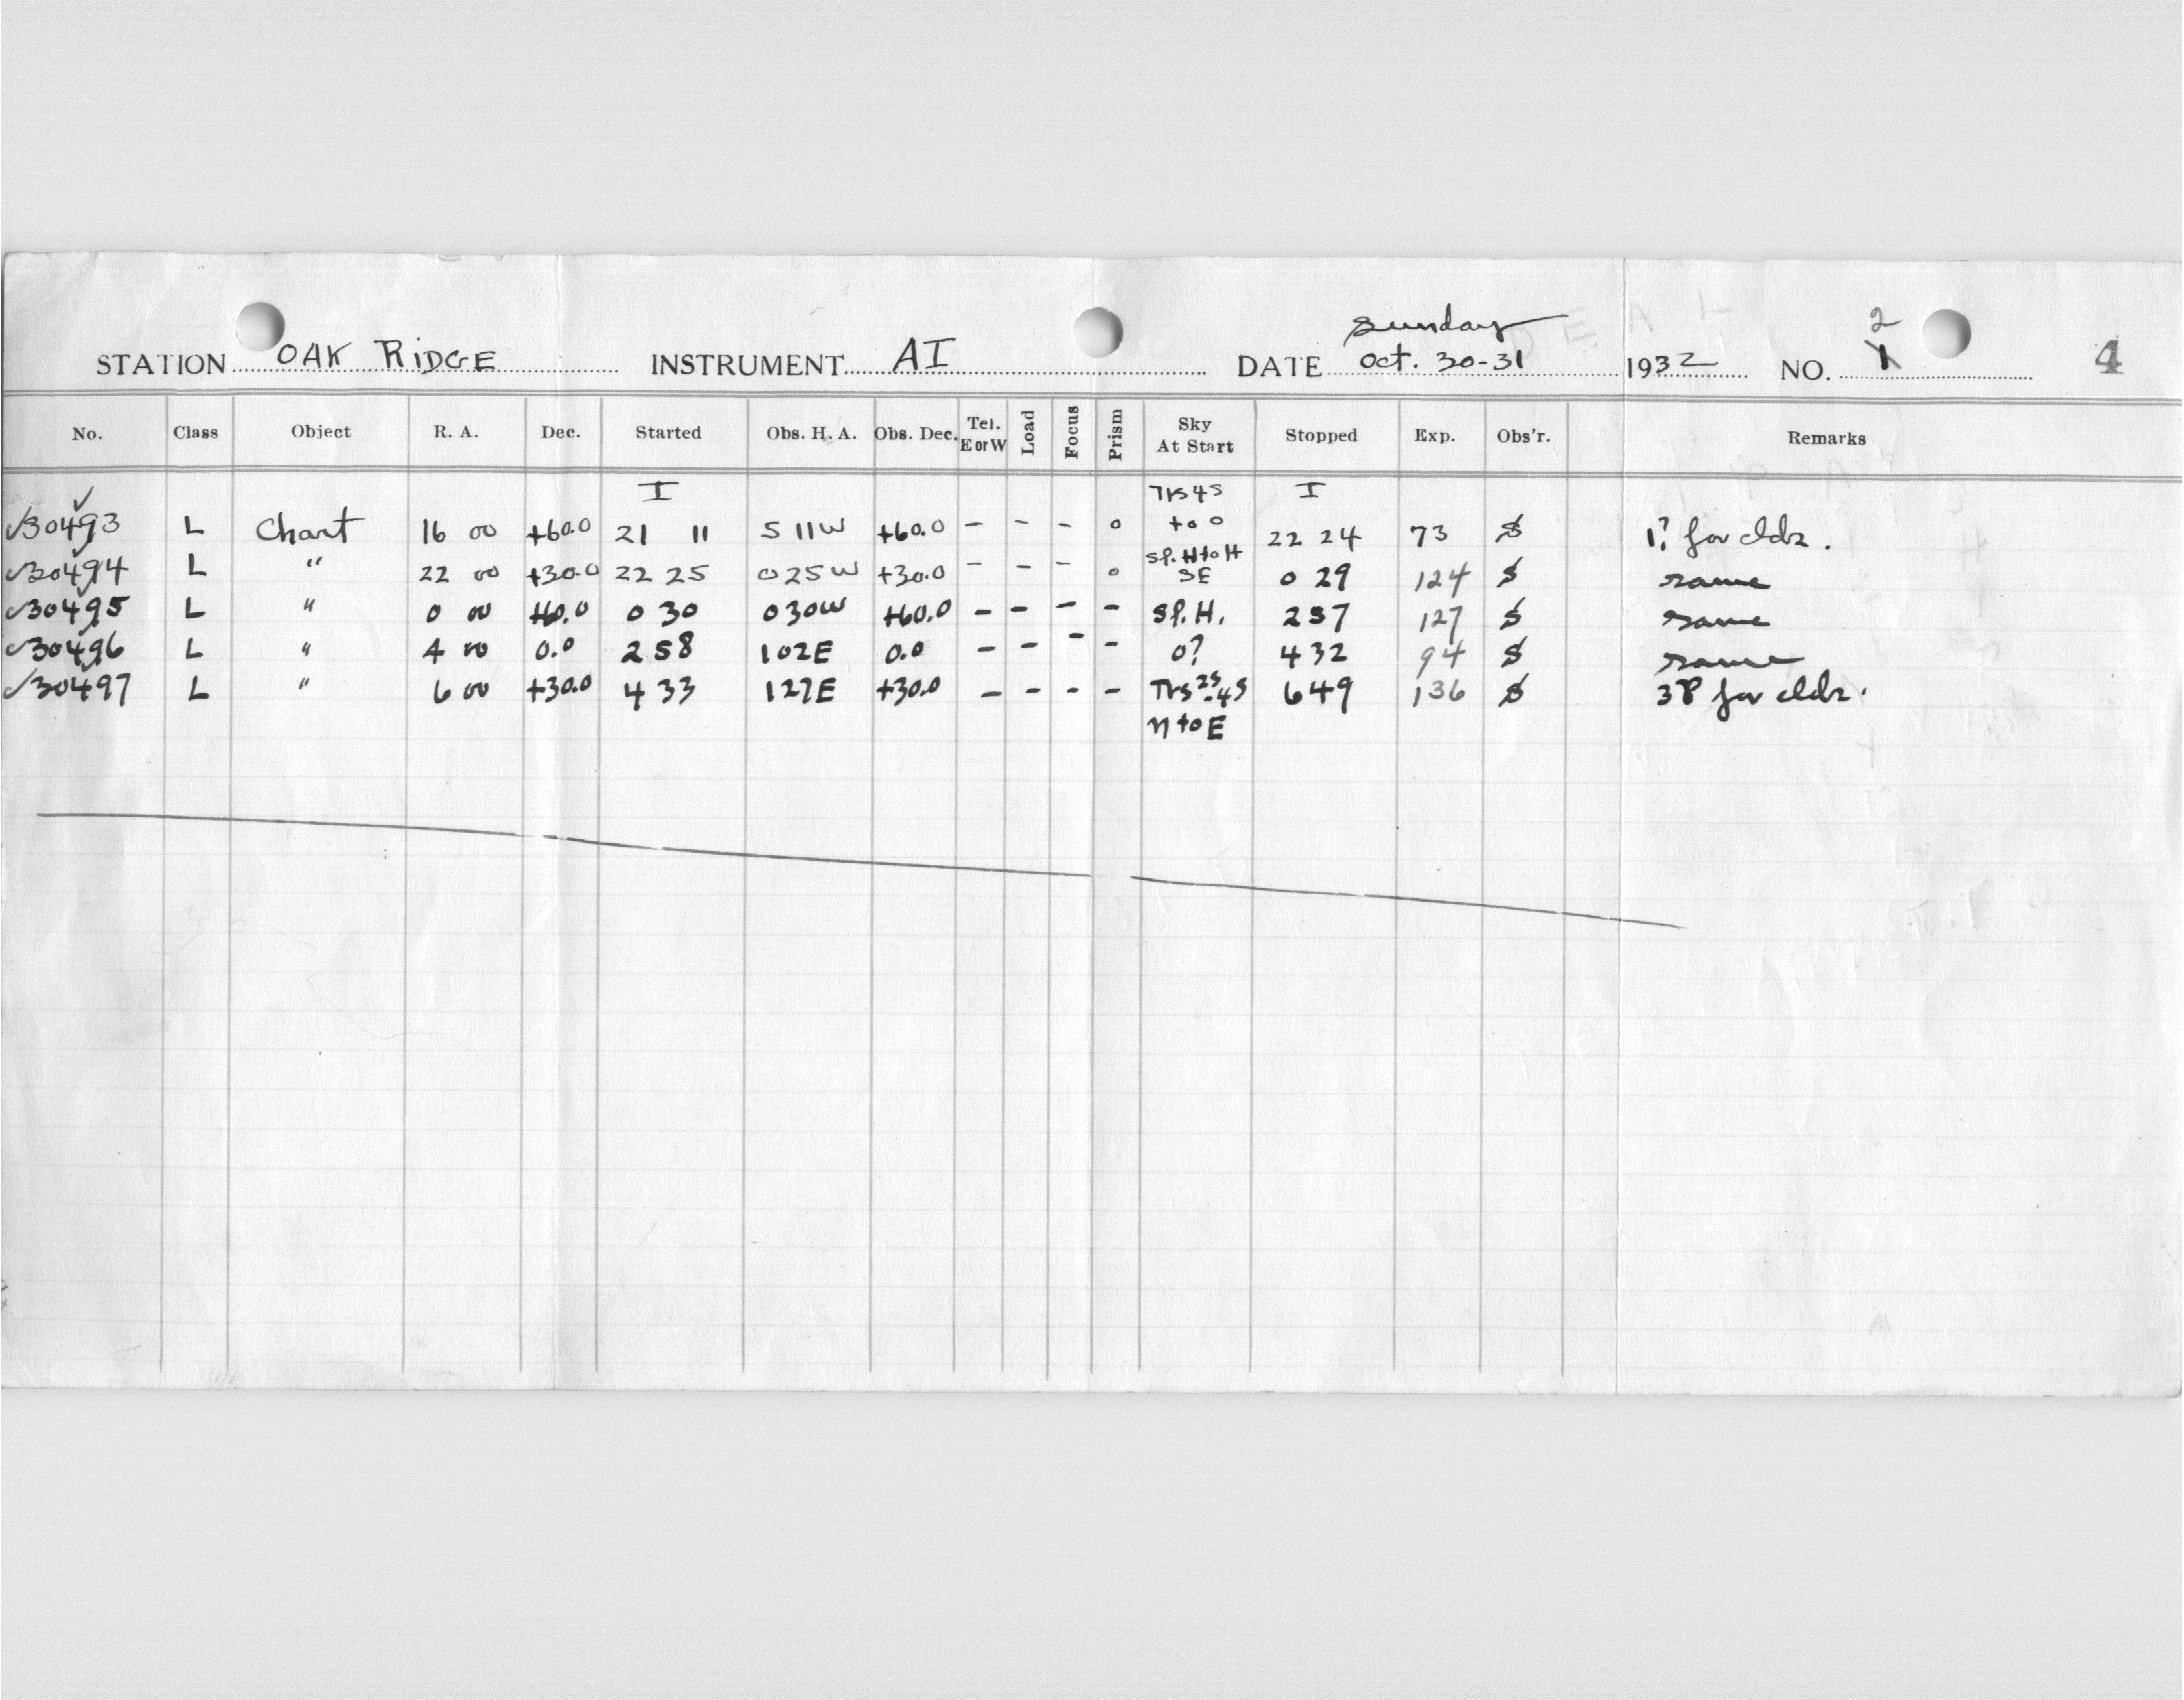 Sunday
STATION OAK RIDGE INSTRUMENT AI DATE Oct. 30-31 1932 NO. 1 2 4
No. Class Object R. A. Dec. Started Obs. H. A. Obs. Dec. Tel. E or W Load Focus Prism Sky At Start Stopped Exp. Obs'r. Remarks
I Trs 4S I
✓30493 L Chart 16 00 +60.0 21 11 5 11W +60.0 - - - 0 to 0 22 24 73 $ 1? for clds.
✓30494 L " 22 00 +30.0 22 25 0 25W +30.0 - - - 0 Sp. H to H SE 0 29 124 $ same
✓30495 L " 0 00 +60.0 0 30 0 30W +60.0 - - - - Sp. H. 2 57 127 $ same
✓30496 L " 4 00 0.0 2 58 1 02E 0.0 - - - - 0? 4 32 94 $ same
✓30497 L " 6 00 +30.0 4 33 1 27E +30.0 - - - - Trs 2S-4S 6 49 136 $ for clds.
N to E